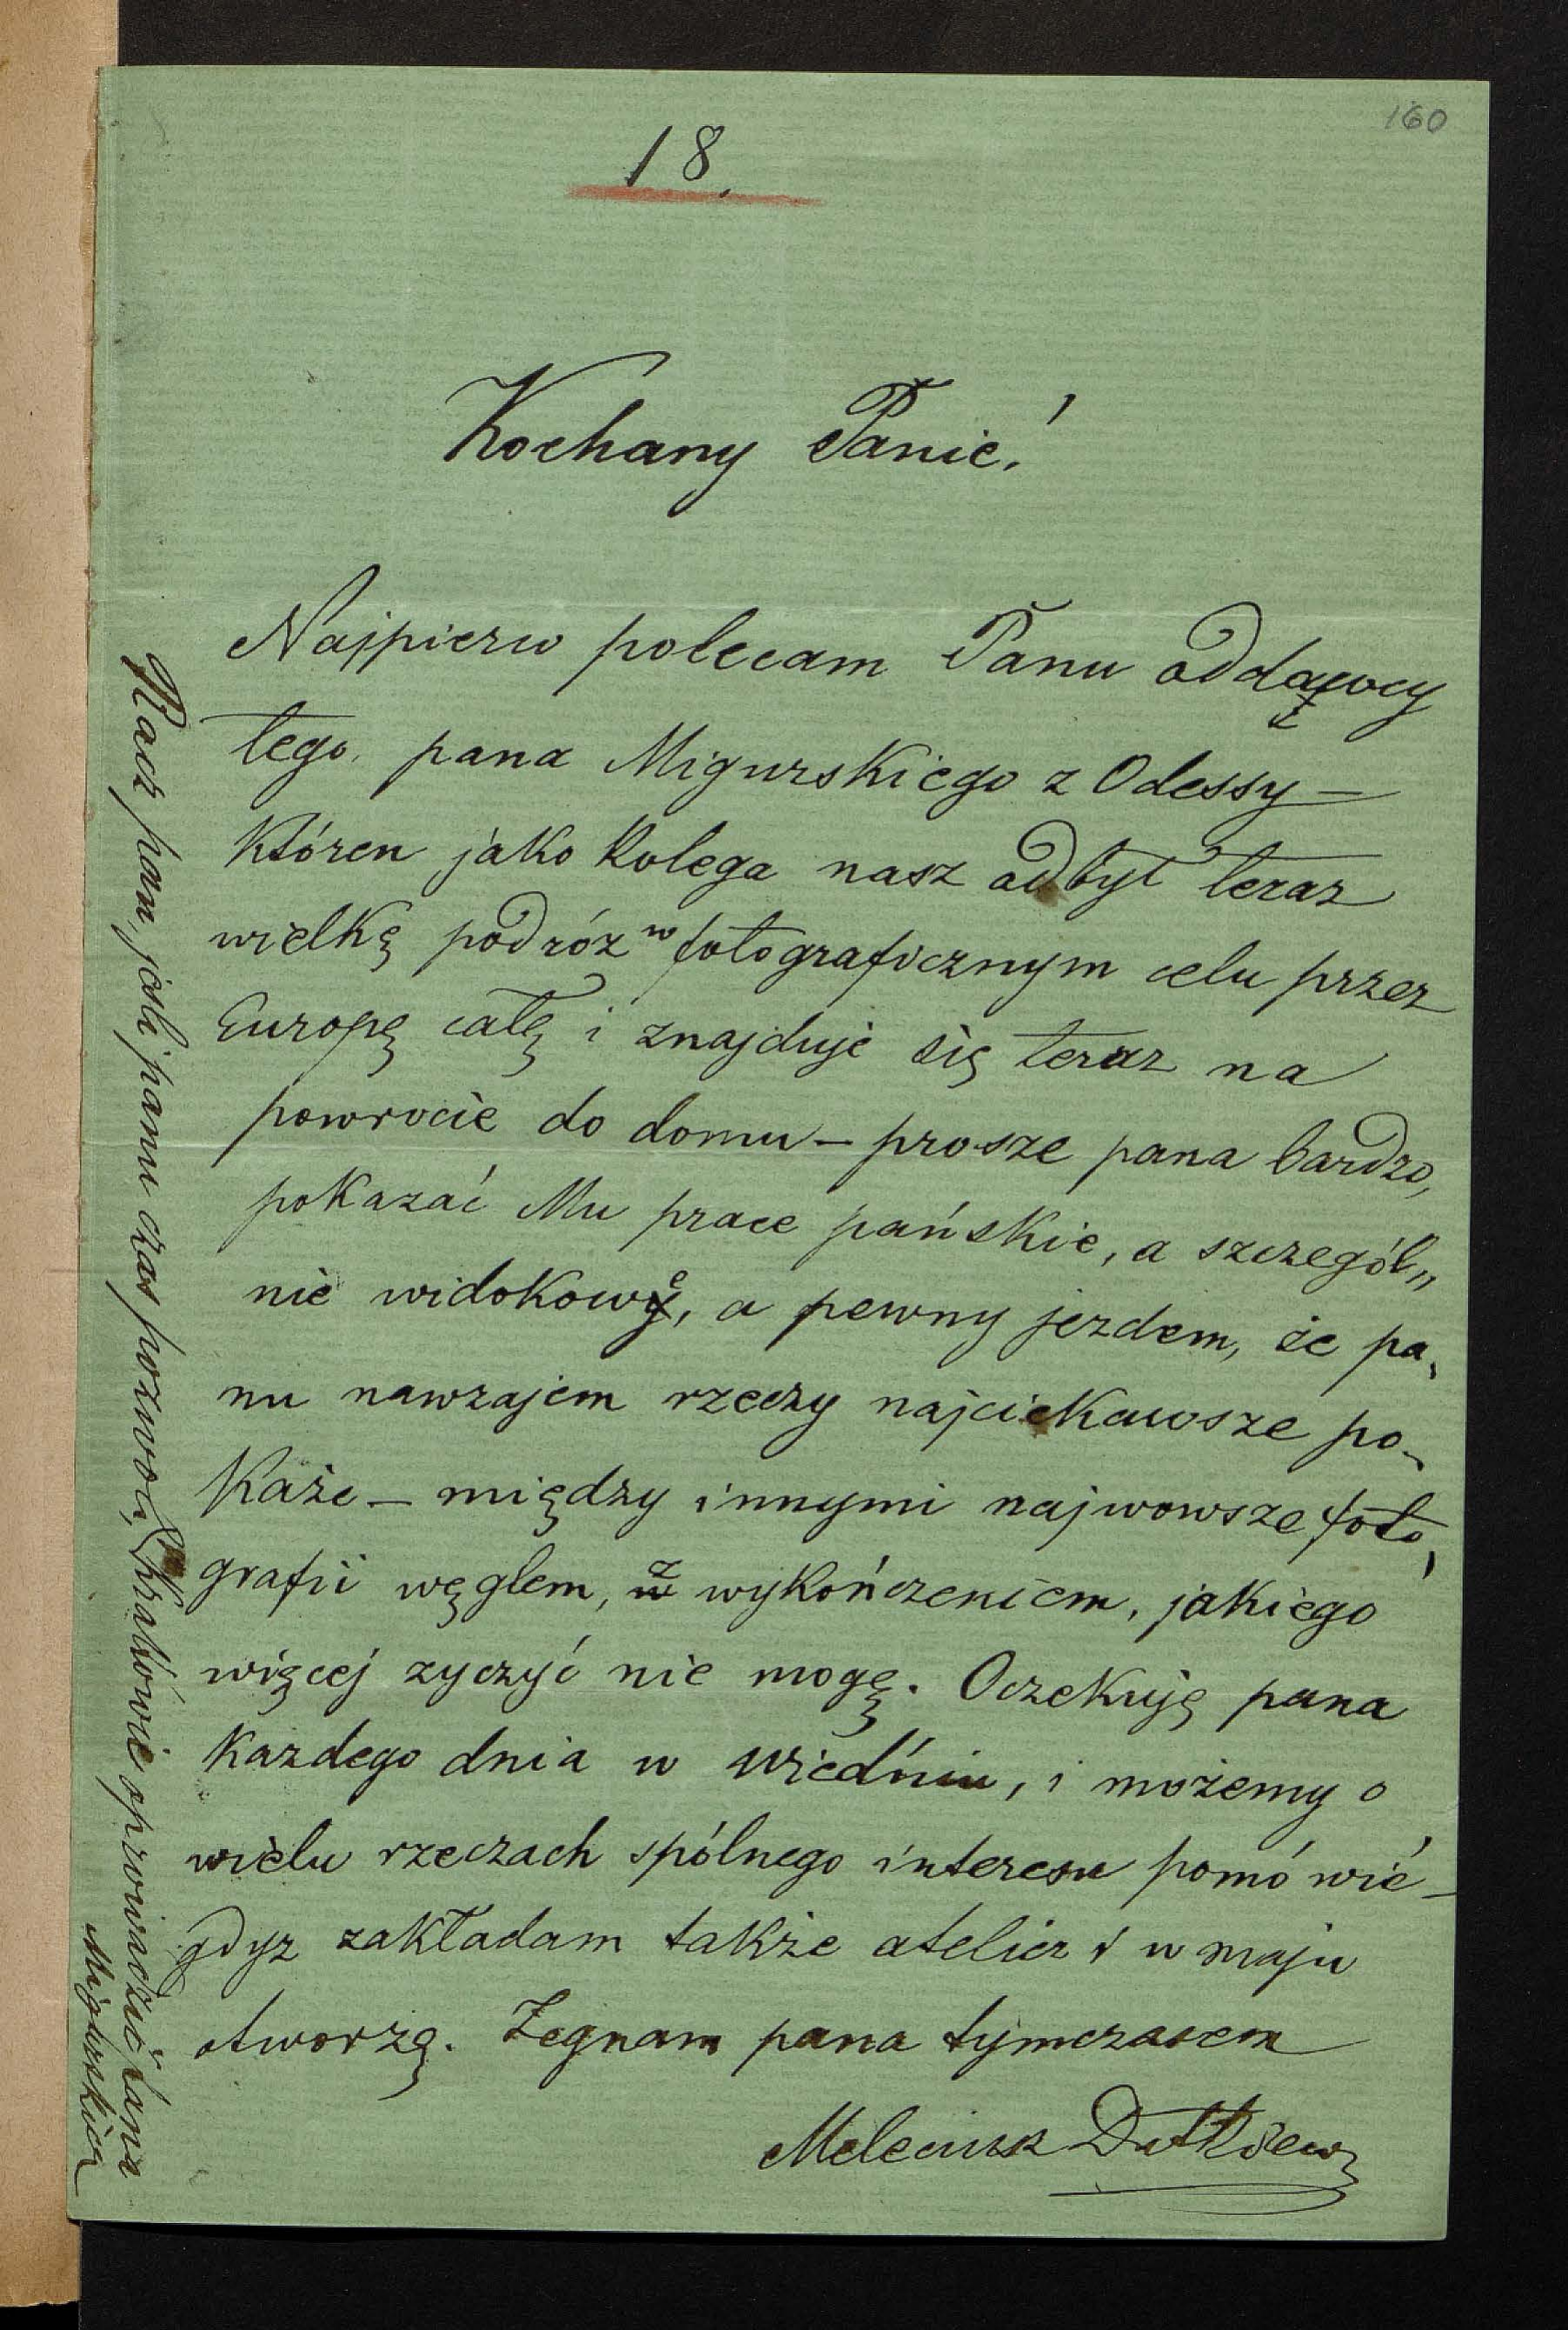 160
18.
Kochany Panie!
Najpierw polecam Panu oddawcy
tego, pana Migurskiego z Odessy —
któren jako kolega nasz odbył teraz
wielkę podróz w fotograficznym celu przez
Europę całę i znajduje się teraz na
powrocie do domu — prosze pana bardzo,
pokazać Mu prace pańskie, a szczegól„
nie widokowe, a pewny jezdem, że pa„
nu nawzajem rzeczy najciekawsze po„
każe — między innymi najwowsze foto„
grafii węglem, z wykończeniem, jakiego
więcej zyczyć nie mogę. Oczekuję pana
kazdego dnia w Wiedniu, i możemy o
wielu rzeczach spólnego interesu pomówić —
gdyz zakładam także atelier i w maju
otworzę. Żegnam pana tymczasem
Meleciusz Dutkiewicz
Racz pan, jeśli panu czas pozwoli, po Krakówie oprowadzić pana
Migurskiego